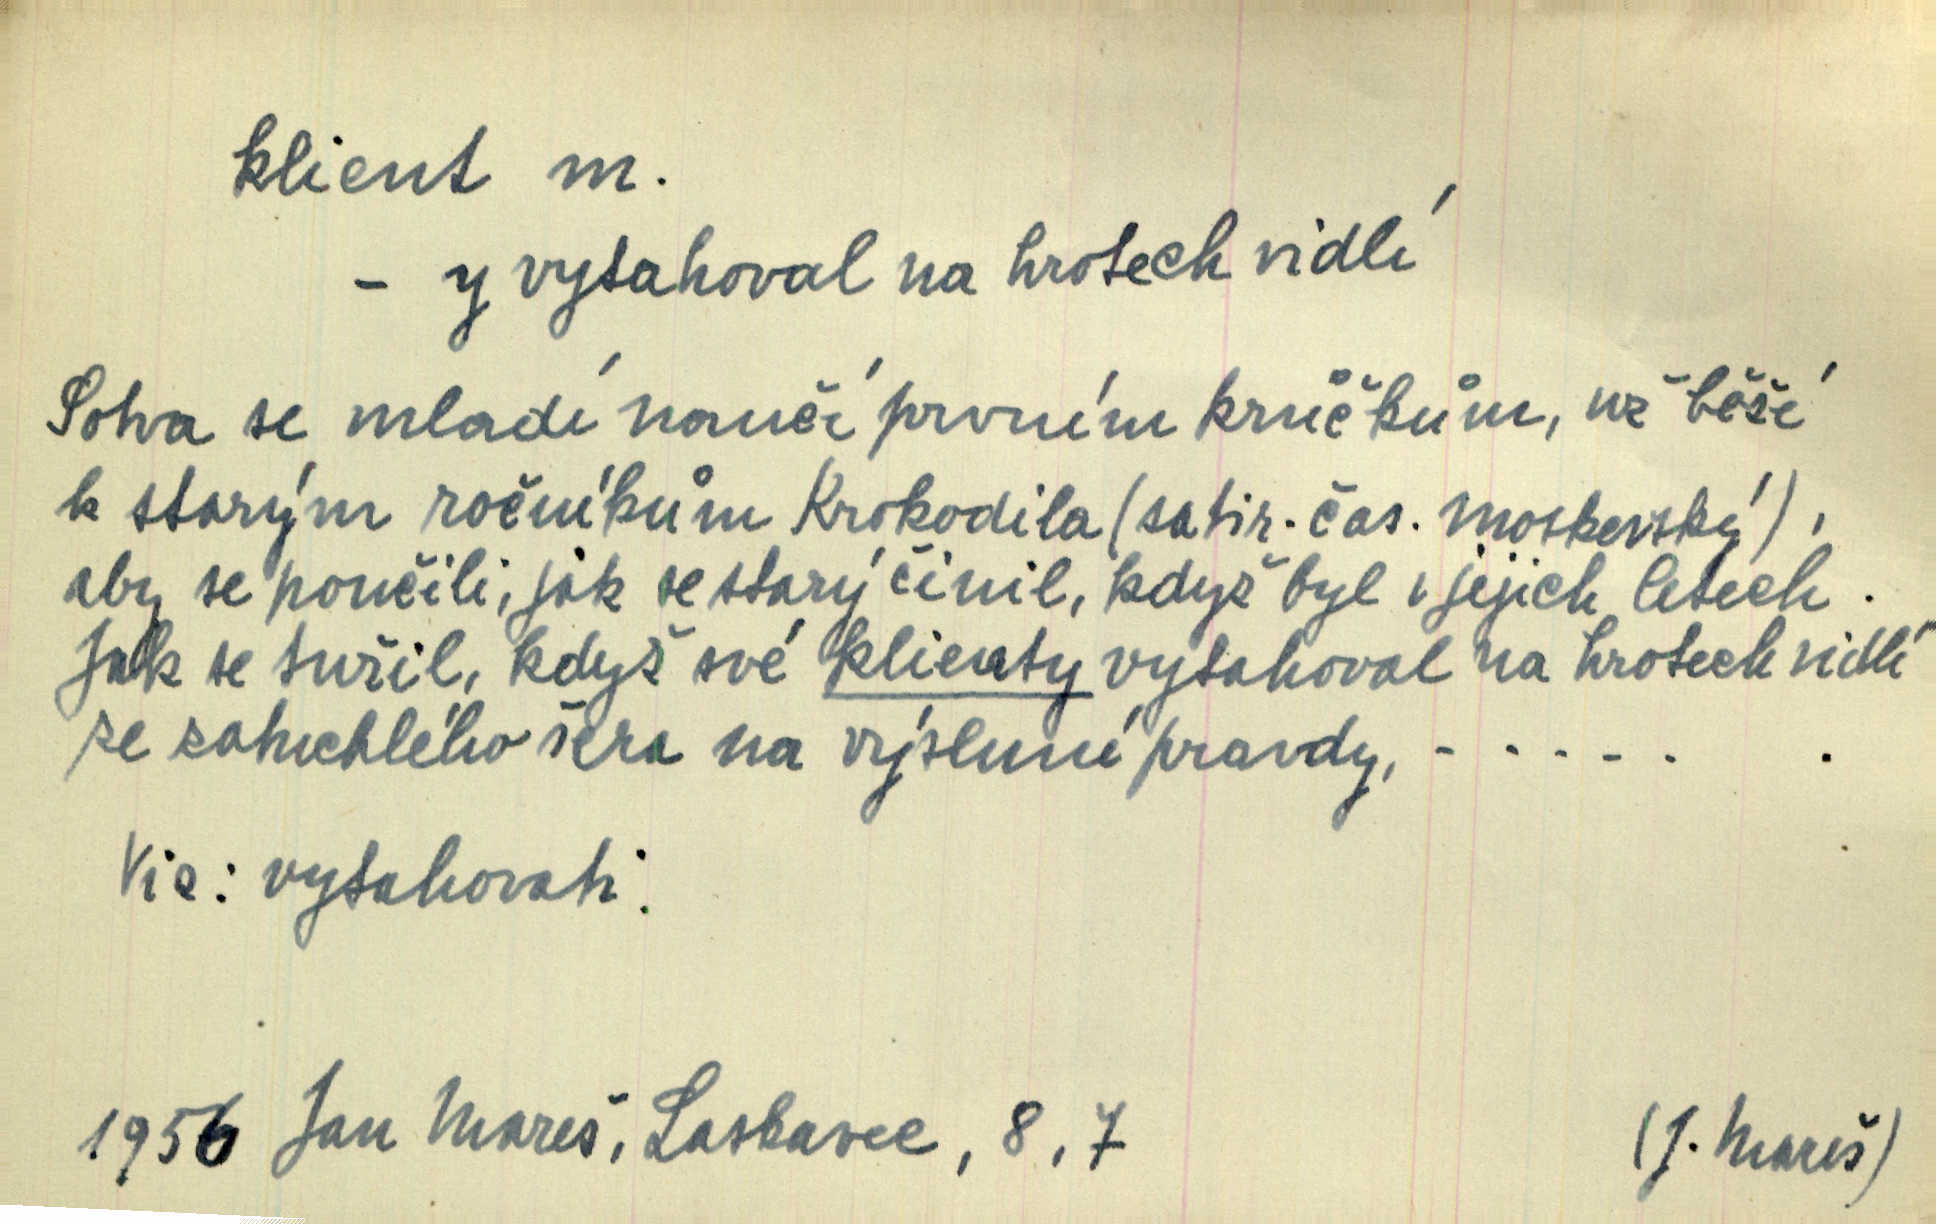 klient m.
- y vytahoval na hrotech vidlí
Sotva se mladí naučí prvním krůčkům, už běží
k starým ročníkům Krokodila (satir. čas. moskevský),
aby se poučili, jak se starý činil, když byl v jejich letech.
Jak se tužil, když své klienty vytahoval na hrotech vidlí
ze zatuchlého šera na výsluní pravdy, - - - - - .
Viz: vytahovati.
1956 Jan Mareš, Laskavec, 8, 7 (J. Mareš)